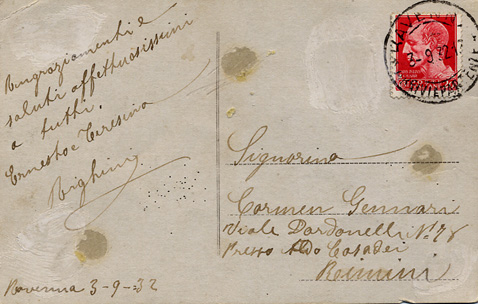 Ringraziamenti e
saluti affettuosissimi
a tutti.
Ernesto e Teresina
Righini
Ravenna 3-9-32
Signorina
Carmen Gennari
Viale Dardanelli N.
Presso Aldo Casadei
Rimini